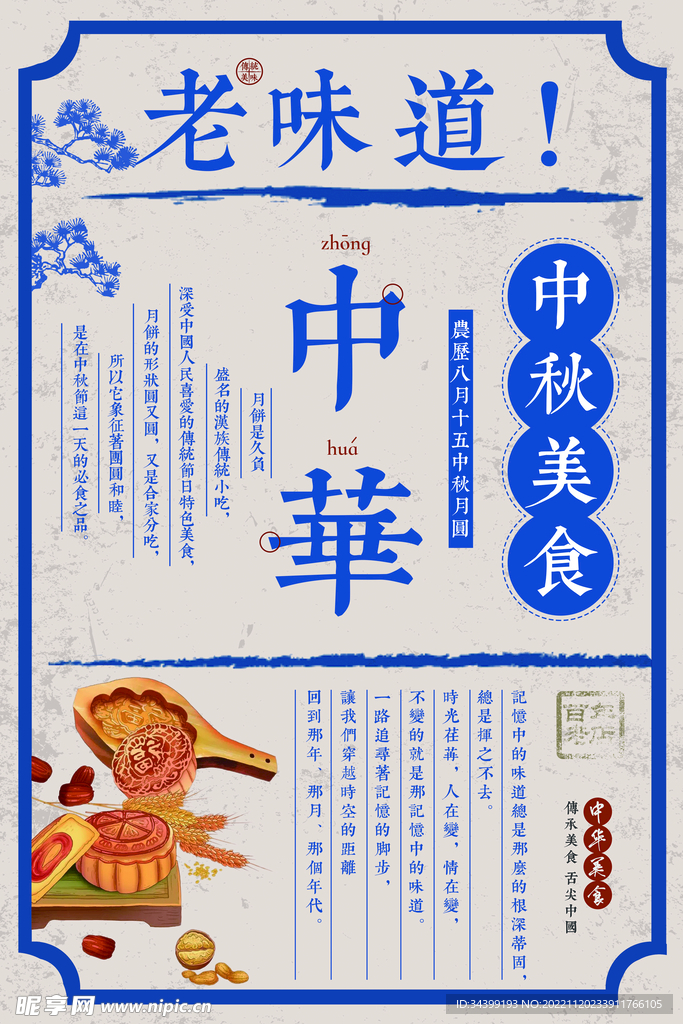 老味道！
傳統
美味
zhōng
中
huá
華
中秋美食
農歷八月十五中秋月圓
月餅是久負
盛名的漢族傳統小吃，
深受中國人民喜愛的傳統節日特色美食，
月餅的形狀圓又圓，又是合家分吃，
所以它象征著團圓和睦，
是在中秋節這一天的必食之品。
百年
老店
中华美食
傳承美食 舌尖中國
記憶中的味道總是那麼的根深蒂固，
總是揮之不去。
時光荏苒，人在變，情在變，
不變的就是那記憶中的味道。
一路追尋著記憶的脚步，
讓我們穿越時空的距離
回到那年、那月、那個年代。
昵享网 www.nipic.cn
ID:34399193 NO:20221120233911766105